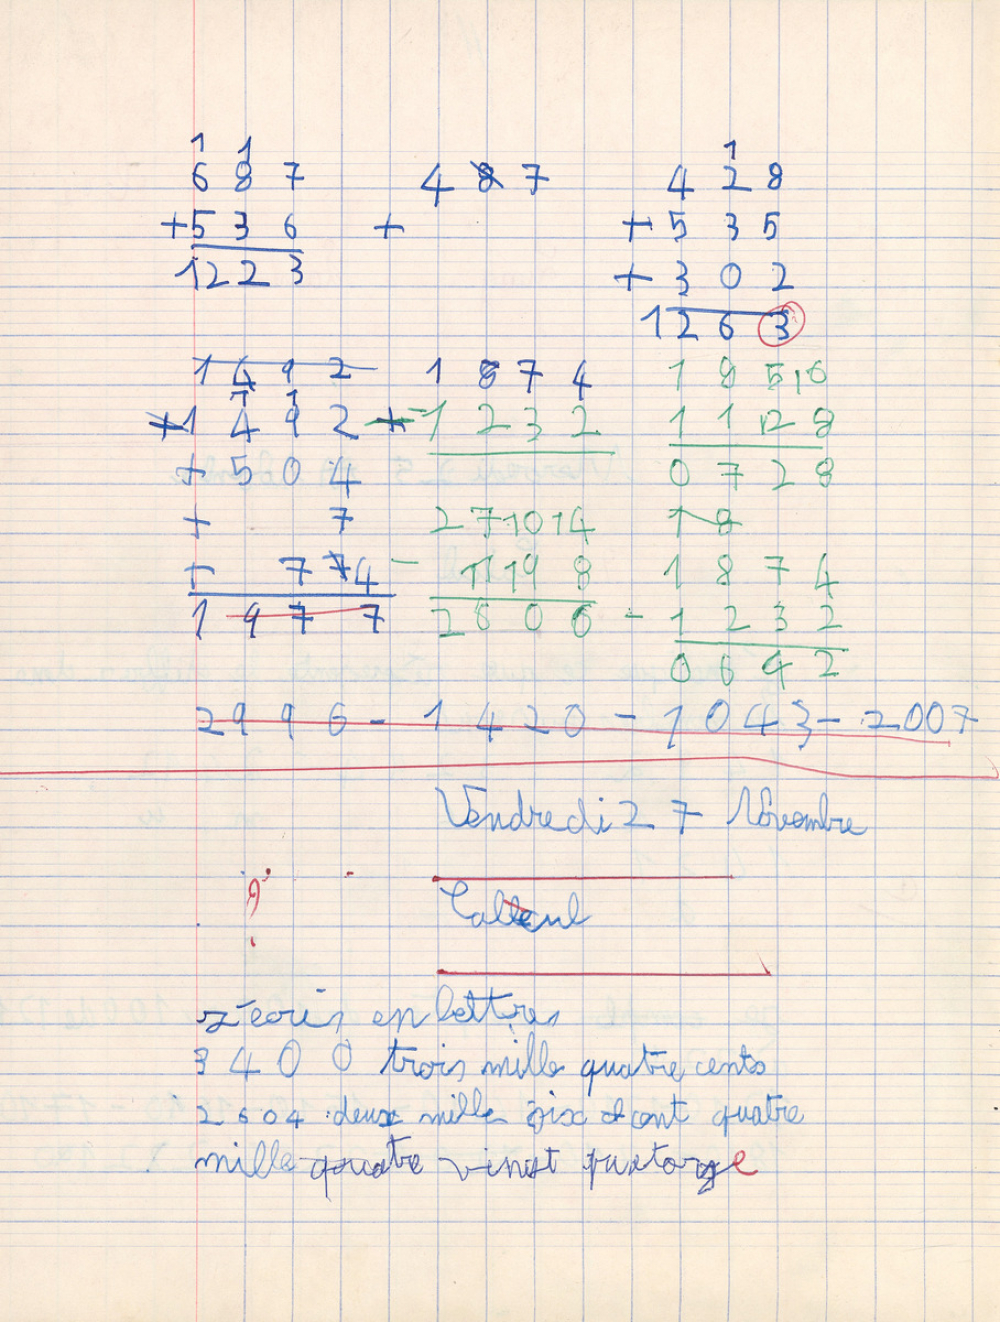 1 1 1
6 8 7 4 8 7 4 2 8
+ 5 3 6 + + 5 3 5
1 2 2 3 + 3 0 2
1 2 6 3
1 4 9 2 1 8 7 4 1 8 5 6
+ 1 4 9 2 - 1 2 3 2 1 1 2 8
+ 5 0 4 0 7 2 8
+ 7 2 7 10 14 1 8
+ 7 7 4 - 1 1 9 8 1 8 7 4
1 9 7 7 2 6 0 6 - 1 2 3 2
0 6 4 2
2996 - 1420 - 1043 - 2007
Vendredi 27 Novembre
Calcul
écris en lettres
3400 trois mille quatre cents
2604 deux mille six cent quatre
mille quatre vingt quatorze